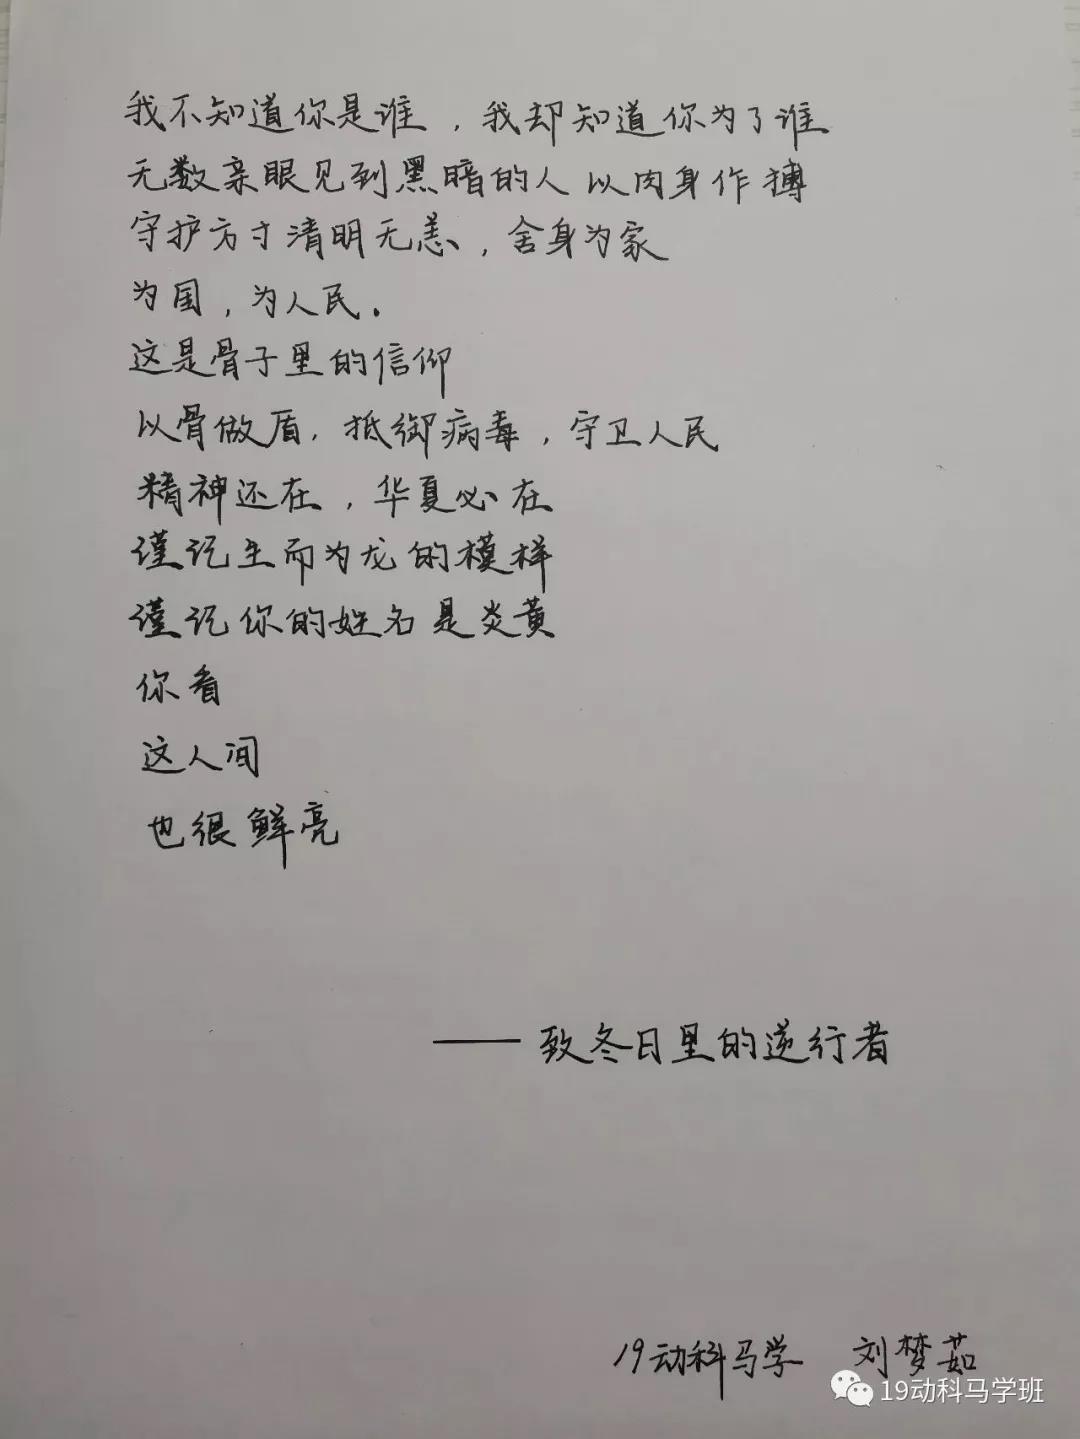 我不知道你是谁，我却知道你为了谁
无数亲眼见到黑暗的人以肉身作搏
守护方寸清明无恙，舍身为家
为国，为人民。
这是骨子里的信仰
以骨做盾，抵御病毒，守卫人民
精神还在，华夏必在
谨记生而为龙的模样
谨记你的姓名是炎黄
你看
这人间
也很鲜亮
——致冬日里的逆行者
19动科马学 刘梦茹
19动科马学班